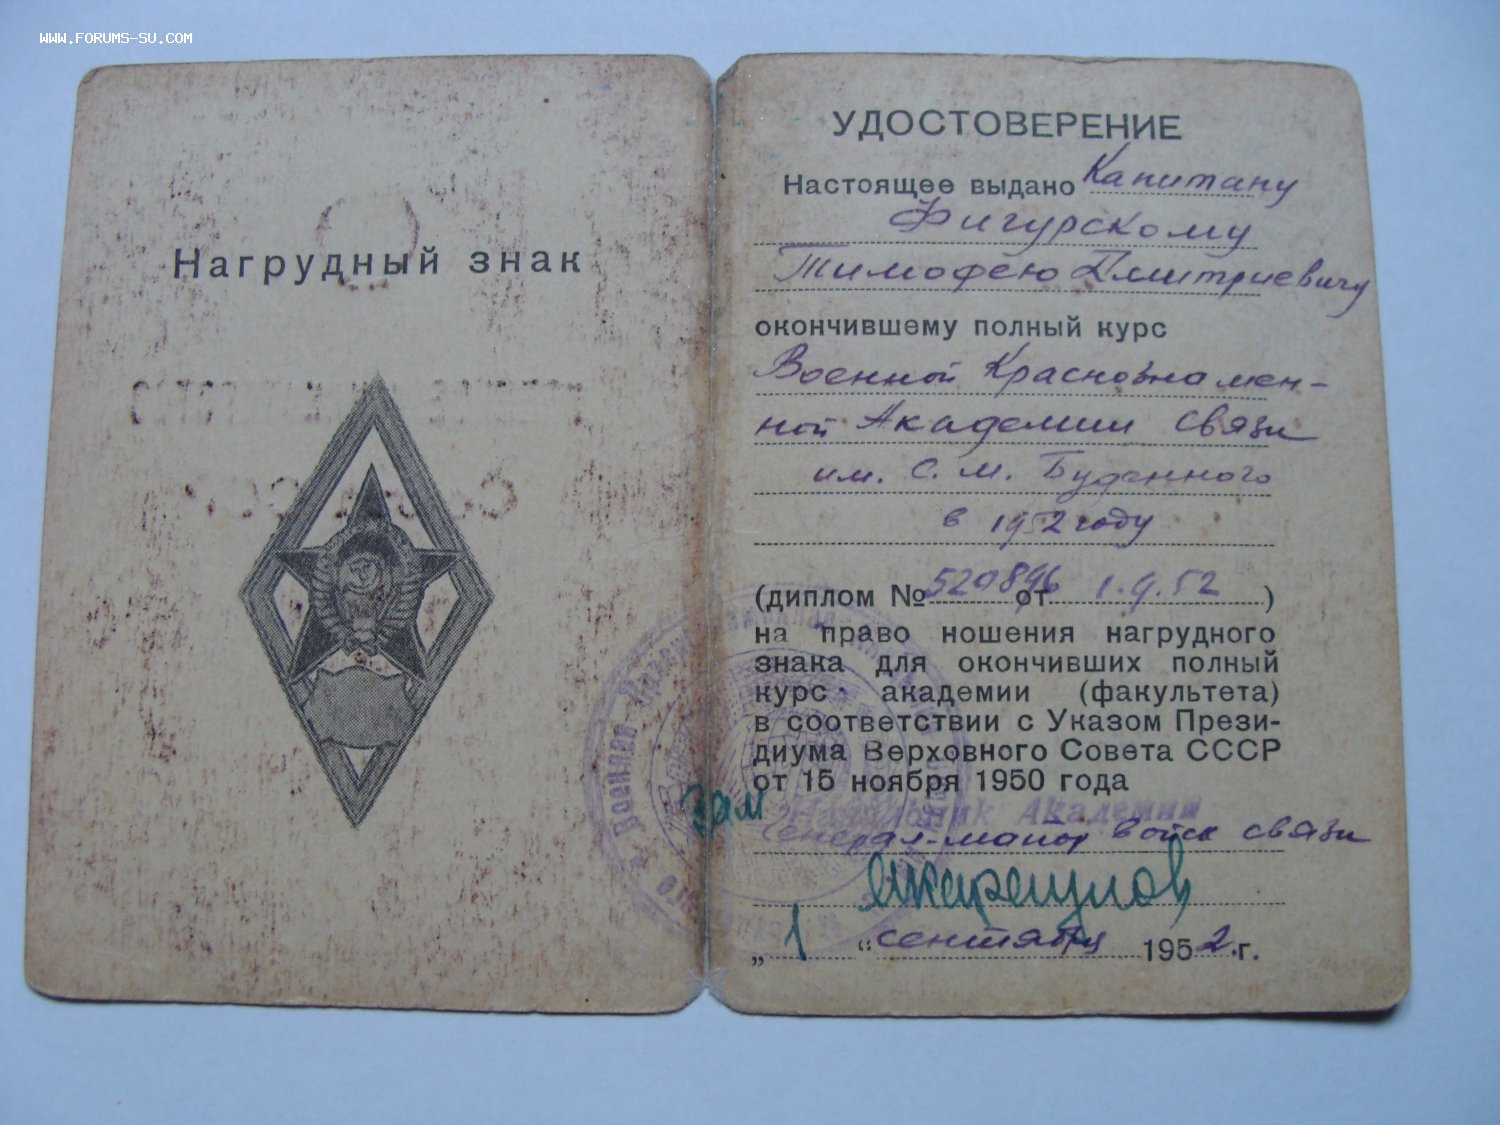 WWW.FORUMS-SU.COM
Нагрудный знак
УДОСТОВЕРЕНИЕ
Настоящее выдано Капитану
Фигурскому
Тимофею Дмитриевичу
окончившему полный курс
Военной Краснознамен-
ной Академии связи
им. С. М. Буденного
в 1952 году
(диплом № 520896 от 1.9.52)
на право ношения нагрудного
знака для окончивших полный
курс академии (факультета)
в соответствии с Указом Прези-
диума Верховного Совета СССР
от 15 ноября 1950 года
Зам Начальник Академии
Генерал-майор войск связи
„1“ сентября 1952 г.